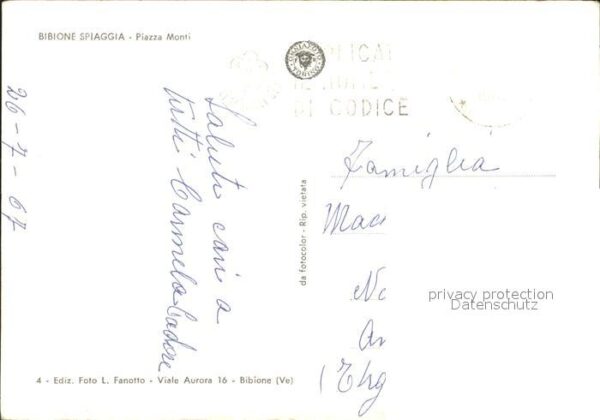 BIBIONE SPIAGGIA - Piazza Monti
DI CODICE
26-7-67
Saluti cari a
tutti Carmela Cadore
da fotocolor - Rip. vietata
Famiglia
Mac
Nc
An
privacy protection
Datenschutz
4 - Ediz. Foto L. Fanotto - Viale Aurora 16 - Bibione (Ve)